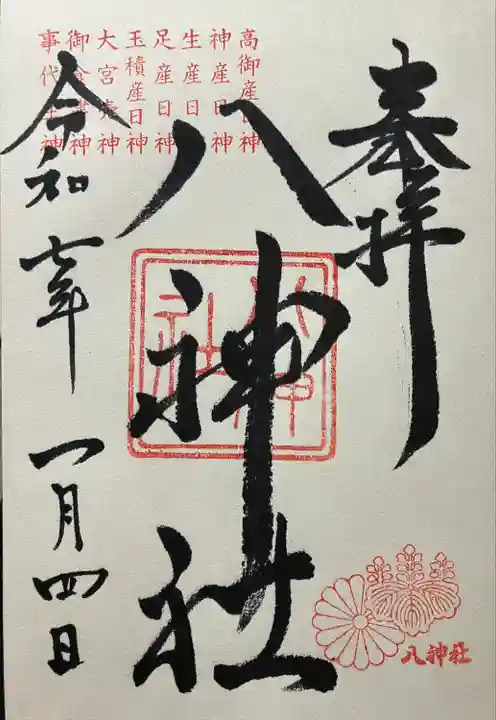 奉拝
高御産日神
神産日神
生産日神
足産日神
玉積産日神
大宮売神
御食津神
事代主神
八神社
八神社
令和七年 一月四日
八神社